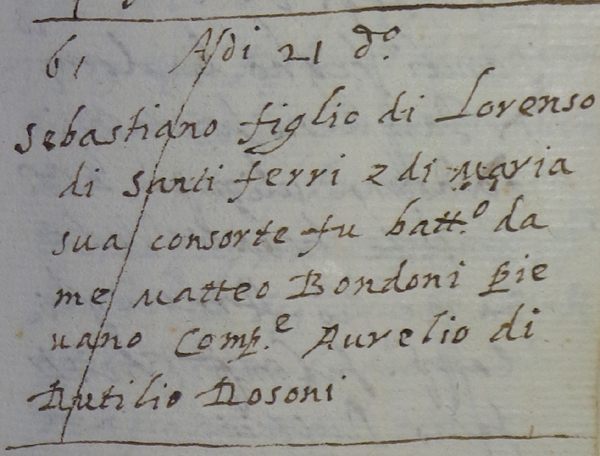 6, Adi 21 d.º
Sebastiano figlio di Lorenso
di Santi ferri e di Maria
sua consorte fu batt.º da
me Matteo Bondoni Pie
uano Comp.e Aurelio di
Rutilio Rosoni